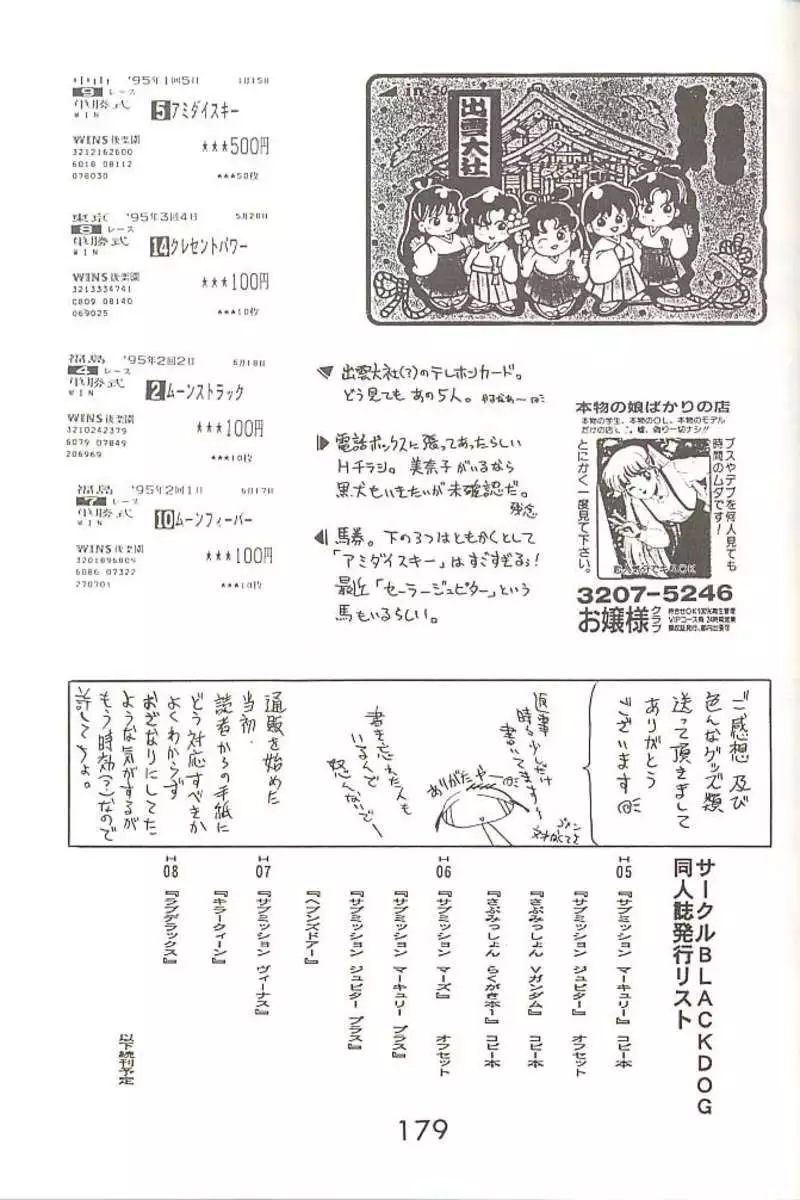 中山 '95年1回5日 1月15日
9 レース
単勝式 5 アミダイスキー
WIN
WINS後楽園 ★★★500円
3212162600
6018 08112
078030 ★★★50枚
東京 '95年3回4日 5月28日
8 レース
単勝式 14 クレセントパワー
WIN
WINS後楽園 ★★★100円
3213334741
C809 08140
069025 ★★★10枚
福島 '95年2回2日 6月18日
4 レース
単勝式 2 ムーンストラック
WIN
WINS後楽園 ★★★100円
3210242379
6079 07849
206969 ★★★10枚
福島 '95年2回1日 6月17日
7 レース
単勝式 10 ムーンフィーバー
WIN
WINS後楽園 ★★★100円
3201096809
6086 07322
270701 ★★★10枚
in 50
出雲大社
出雲大社(?)のテレホンカード。
どう見てもあの5人。
電話ボックスに張ってあったらしい
Hチラシ。美奈子がいるなら
黒犬もいきたいが未確認だ。
残念
馬券。下の3つはともかくとして
「アミダイスキー」はすごすぎるぅ!
最近「セーラージュピター」という
馬もいるらしい。
本物の娘ばかりの店
本物の学生、本物のOL、本物のモデル
だけの店し、嘘、偽り一切ナシ!!
ブスやデブを何人見ても
時間のムダです!
とにかく一度見て下さい。
3207-5246
お嬢様クラブ
VIPコース有 24時間営業
ご感想 及び
色んなグッズ類
送って頂きまして
ありがとう
ございます
返事
時々少しだけ
書いてます〜
ありがたや〜
書き忘れた人も
いるんで
怒んないで〜
通販を始めた
当初、
読者からの手紙に
どう対応すべきか
よくわからず
おざなりにしてた
ような気がするが
もう時効(?)なので
許してちょ。
サークルBLACKDOG
同人誌発行リスト
H05
『サブミッション マーキュリー』 コピー本
『サブミッション ジュピター』 オフセット
『さぶみっしょん Vガンダム』 コピー本
『さぶみっしょん らくがき本1』 コピー本
H06
『サブミッション マーズ』 オフセット
『サブミッション マーキュリー プラス』
『サブミッション ジュピター プラス』
『ヘブンズドアー』
H07
『サブミッション ヴィーナス』
『キラークィーン』
H08
『ラブデラックス』
以下続刊予定
179